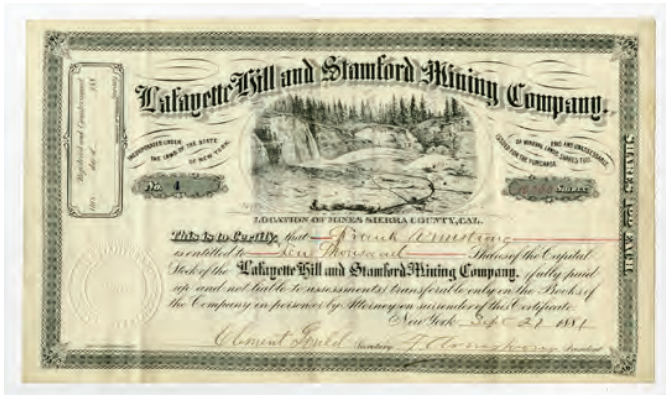 Lafayette Hill and Stamford Mining Company.
INCORPORATED UNDER
THE LAWS OF THE STATE
OF NEW YORK.
ISSUED FOR THE PURCHASE
OF MINING LANDS
AND UNASSESSABLE.
No. 4
Shares
LOCATION OF MINES SIERRA COUNTY, CAL.
This is to Certify, that Frank Armstrong
is entitled to Ten Thousand Shares of the Capital
Stock of the Lafayette Hill and Stamford Mining Company. (fully paid
up and not liable to assessments) transferable only on the Books of
the Company in person or by Attorney on surrender of this Certificate.
New York Sept 27 1881
Clement Gould Secretary F. Armstrong President
Registered and Countersigned
day of 188
SHARES $100 EACH.